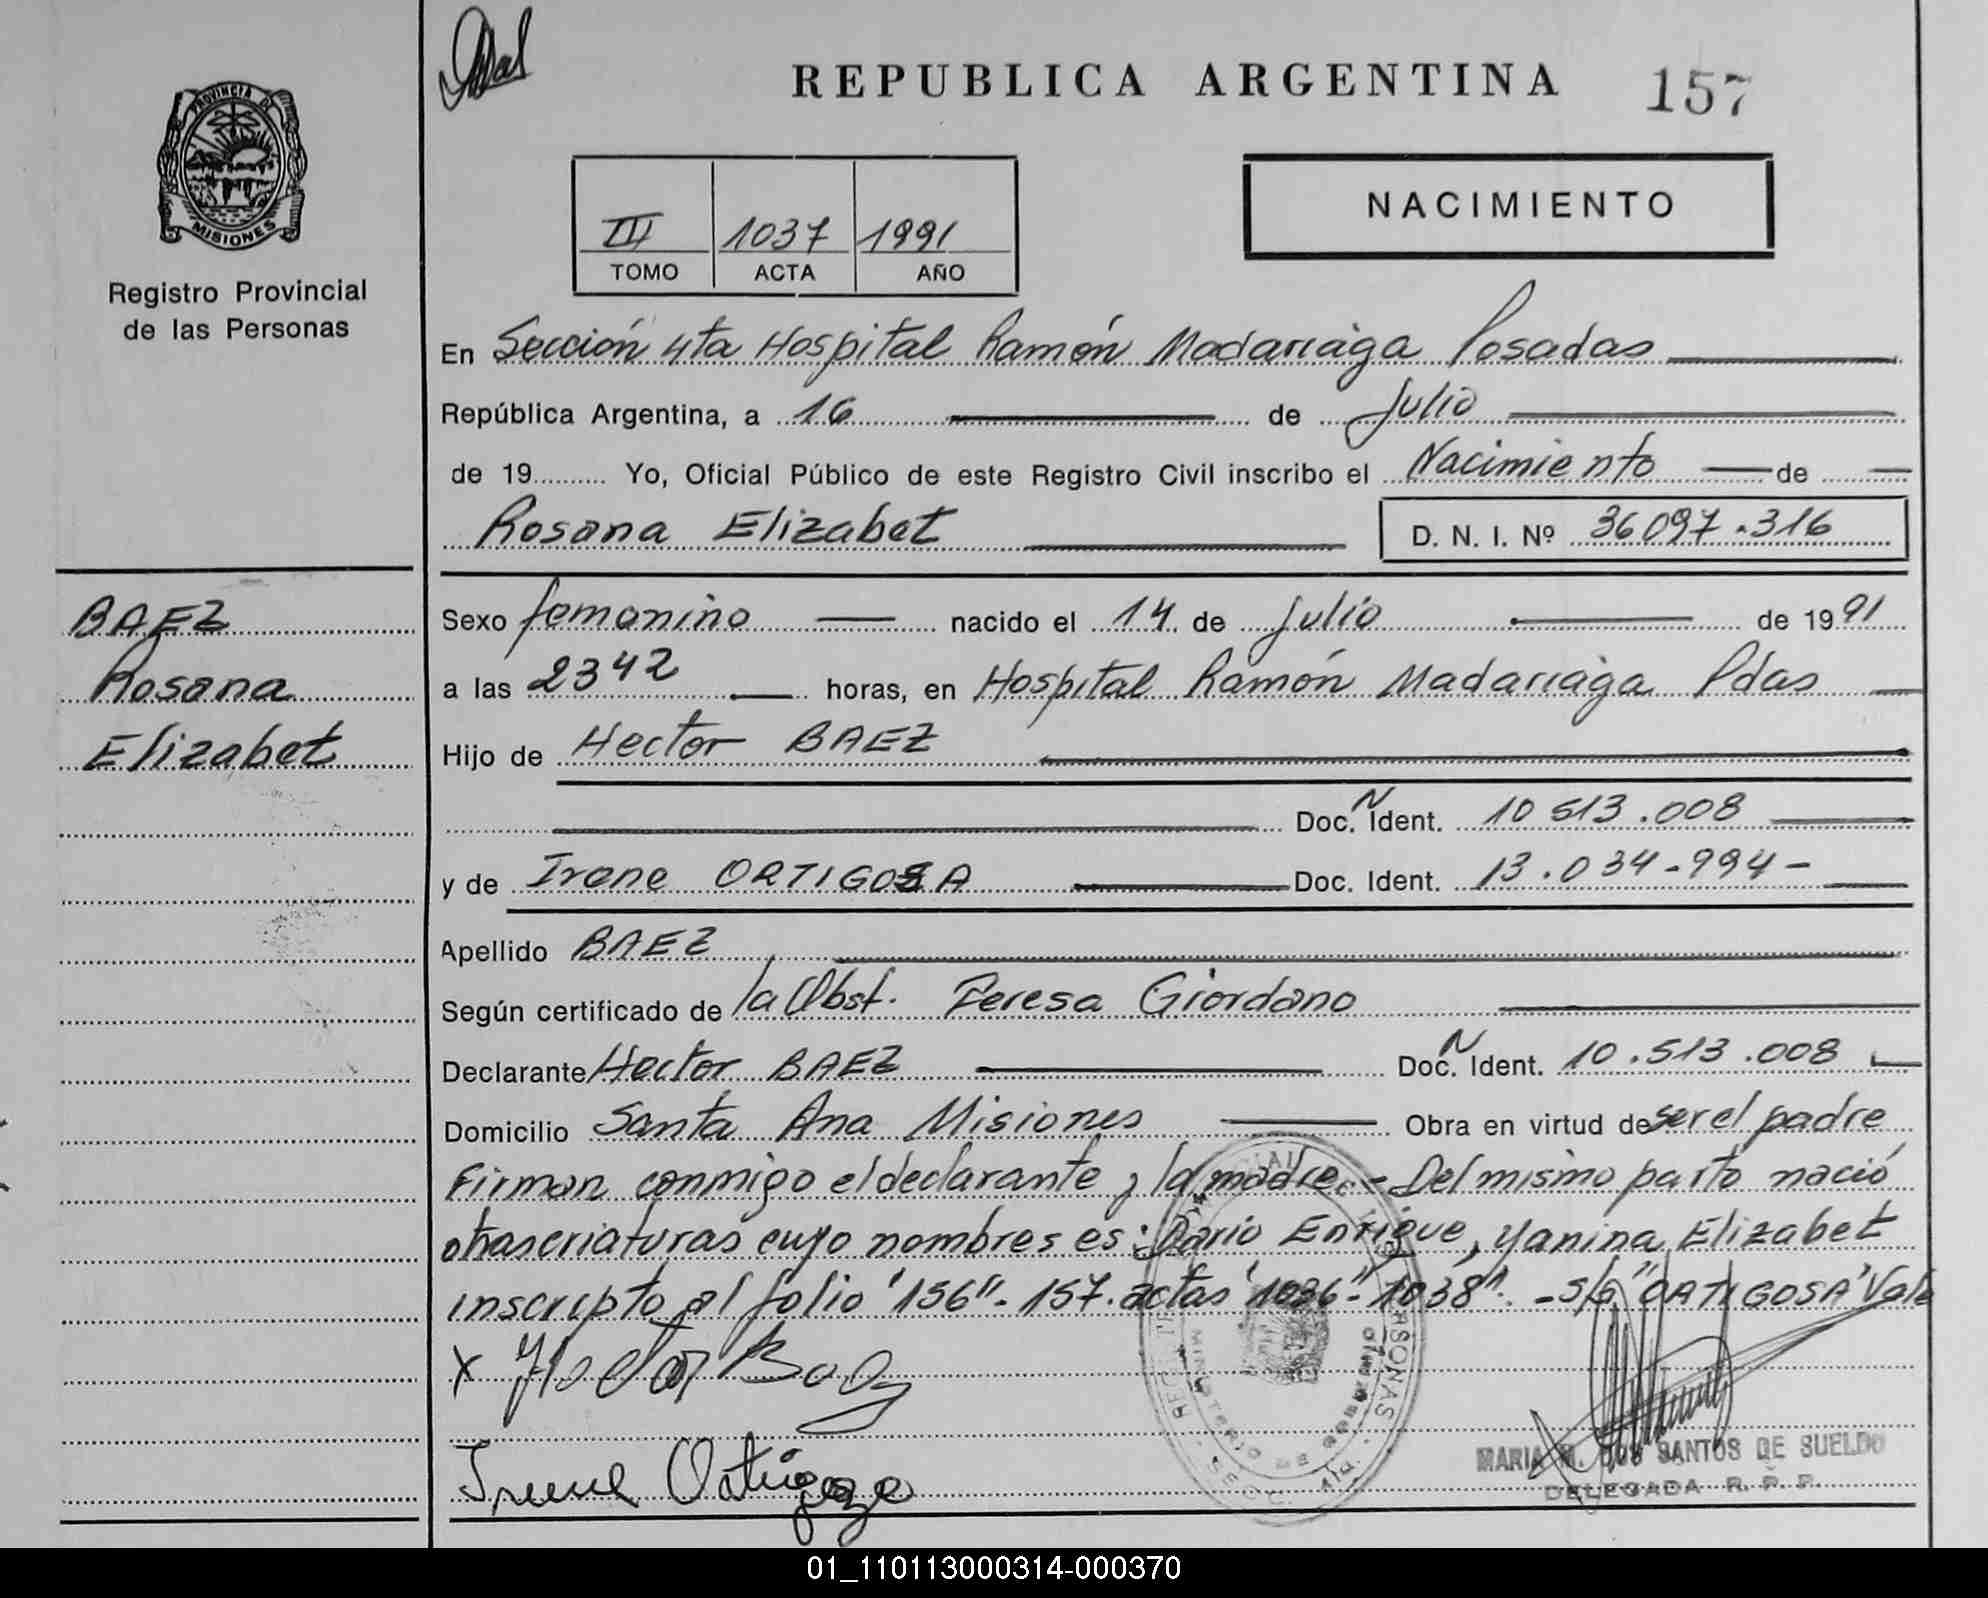 REPUBLICA ARGENTINA
157
PROVINCIA DE
MISIONES
Registro Provincial
de las Personas
NACIMIENTO
III 1037 1991
TOMO ACTA AÑO
En Sección 4ta Hospital Ramón Madariaga Posadas
República Argentina, a 16 de Julio
de 19 Yo, Oficial Público de este Registro Civil inscribo el Nacimiento de
Rosana Elizabet D. N. I. Nº 36097.316
BAEZ
Rosana
Elizabet
Sexo femenino nacido el 14 de Julio de 1991
a las 2342 horas, en Hospital Ramón Madariaga Pdas
Hijo de Hector BAEZ
Doc. N Ident. 10 513.008
y de Irene ORTIGOSA Doc. Ident. 13.034-994-
Apellido BAEZ
Según certificado de la Obst. Teresa Giordano
Declarante Hector BAEZ Doc. N Ident. 10.513.008
Domicilio Santa Ana Misiones Obra en virtud de ser el padre
Firman conmigo el declarante y la madre.- Del mismo parto nació
otras criaturas cuyo nombres es: Dario Enrique, Yanina Elizabet
inscripto al folio "156"- 157. actas "1036"- 1038". -S/G "ORTIGOSA" Vale
x Hector Baez
Irene Ortigoza
MARIA M. DOS SANTOS DE SUELDO
DELEGADA R. P. P.
01_110113000314-000370